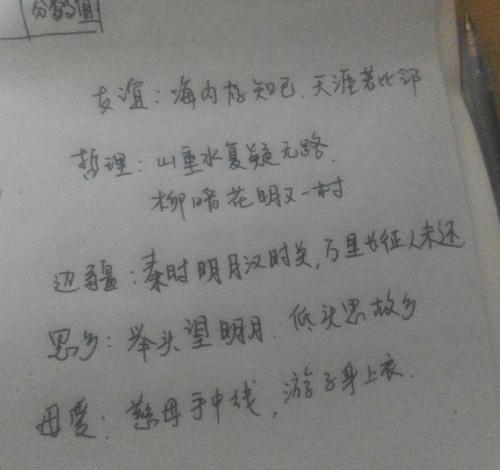 分数值
友谊：海内存知己．天涯若比邻
哲理：山重水复疑无路．
柳暗花明又一村
边疆：秦时明月汉时关，万里长征人未还
思乡：举头望明月．低头思故乡
母爱：慈母手中线，游子身上衣．